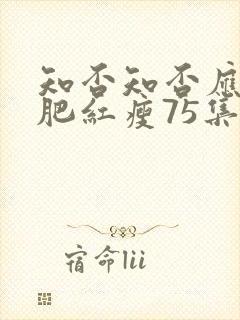 知否知否应
肥红瘦75集
宿命lii